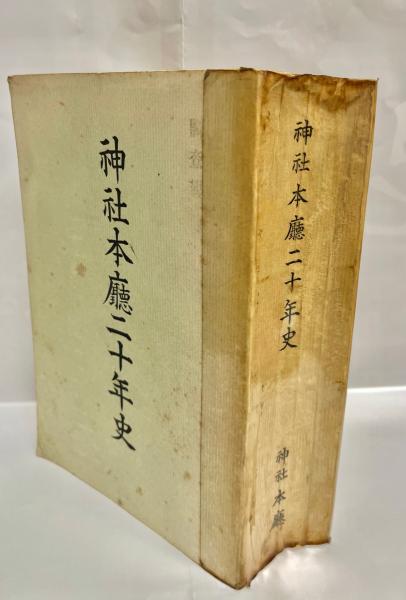 神社本廳二十年史
神社本廳二十年史
神社本廳